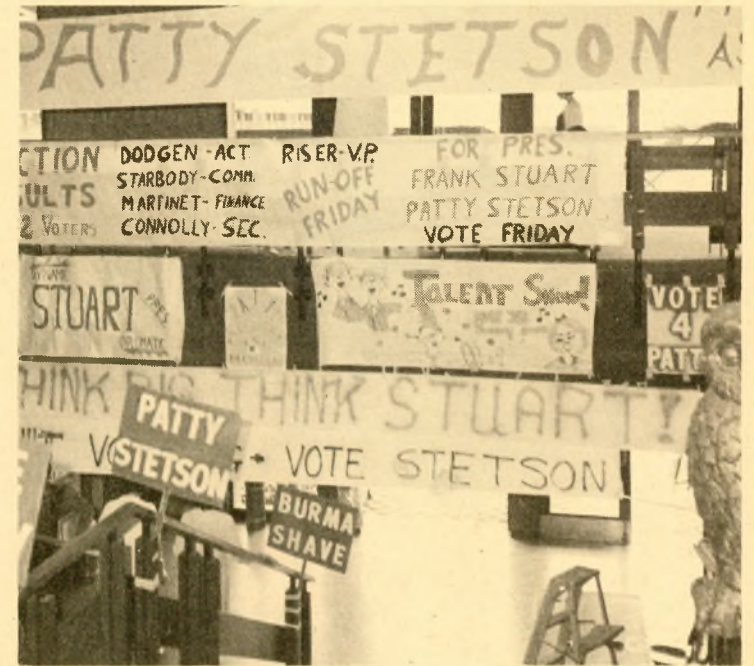 PATTY STETSON
CTION
ULTS
2 VOTERS
DODGEN - ACT.
STARBODY - COMM.
MARTINET - FINANCE
CONNOLLY - SEC.
RISER - V.P.
RUN-OFF
FRIDAY
FOR PRES.
FRANK STUART
PATTY STETSON
VOTE FRIDAY
STUART
PRES.
TALENT SHOW!
VOTE
4
PATT
HINK BIG THINK STUART!
VOTE STETSON
PATTY
STETSON
BURMA
SHAVE